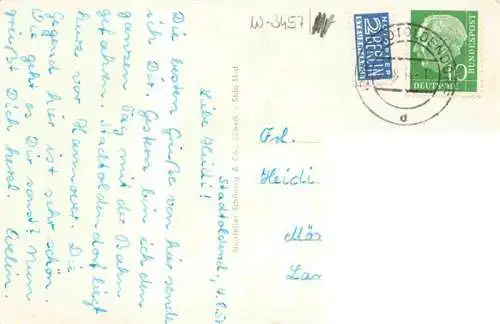 W-3457
Stadtoldend., 4.8.5
Liebe Heidi!
Die besten Grüße von hier sende
ich Dir. Gestern bin ich den
ganzen Tag mit der Bahn
gefahren. Stadtoldendorf liegt
kurz vor Hannover. Die
Gegend hier ist sehr schön.
Wie geht es Dir sonst? Nun
grüßt Dich herzl. Evelin.
Hersteller Schöning & Co., Lübeck
NOTOPFER
2 BERLIN
STEUERMARKE
DEUTSCHE
BUNDESPOST
10
d
Frl.
Heidi
Mör
Lan